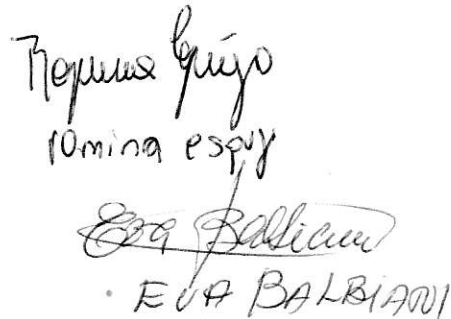 Romina
Romina espy
Eva Balbiani
EVA BALBIANI